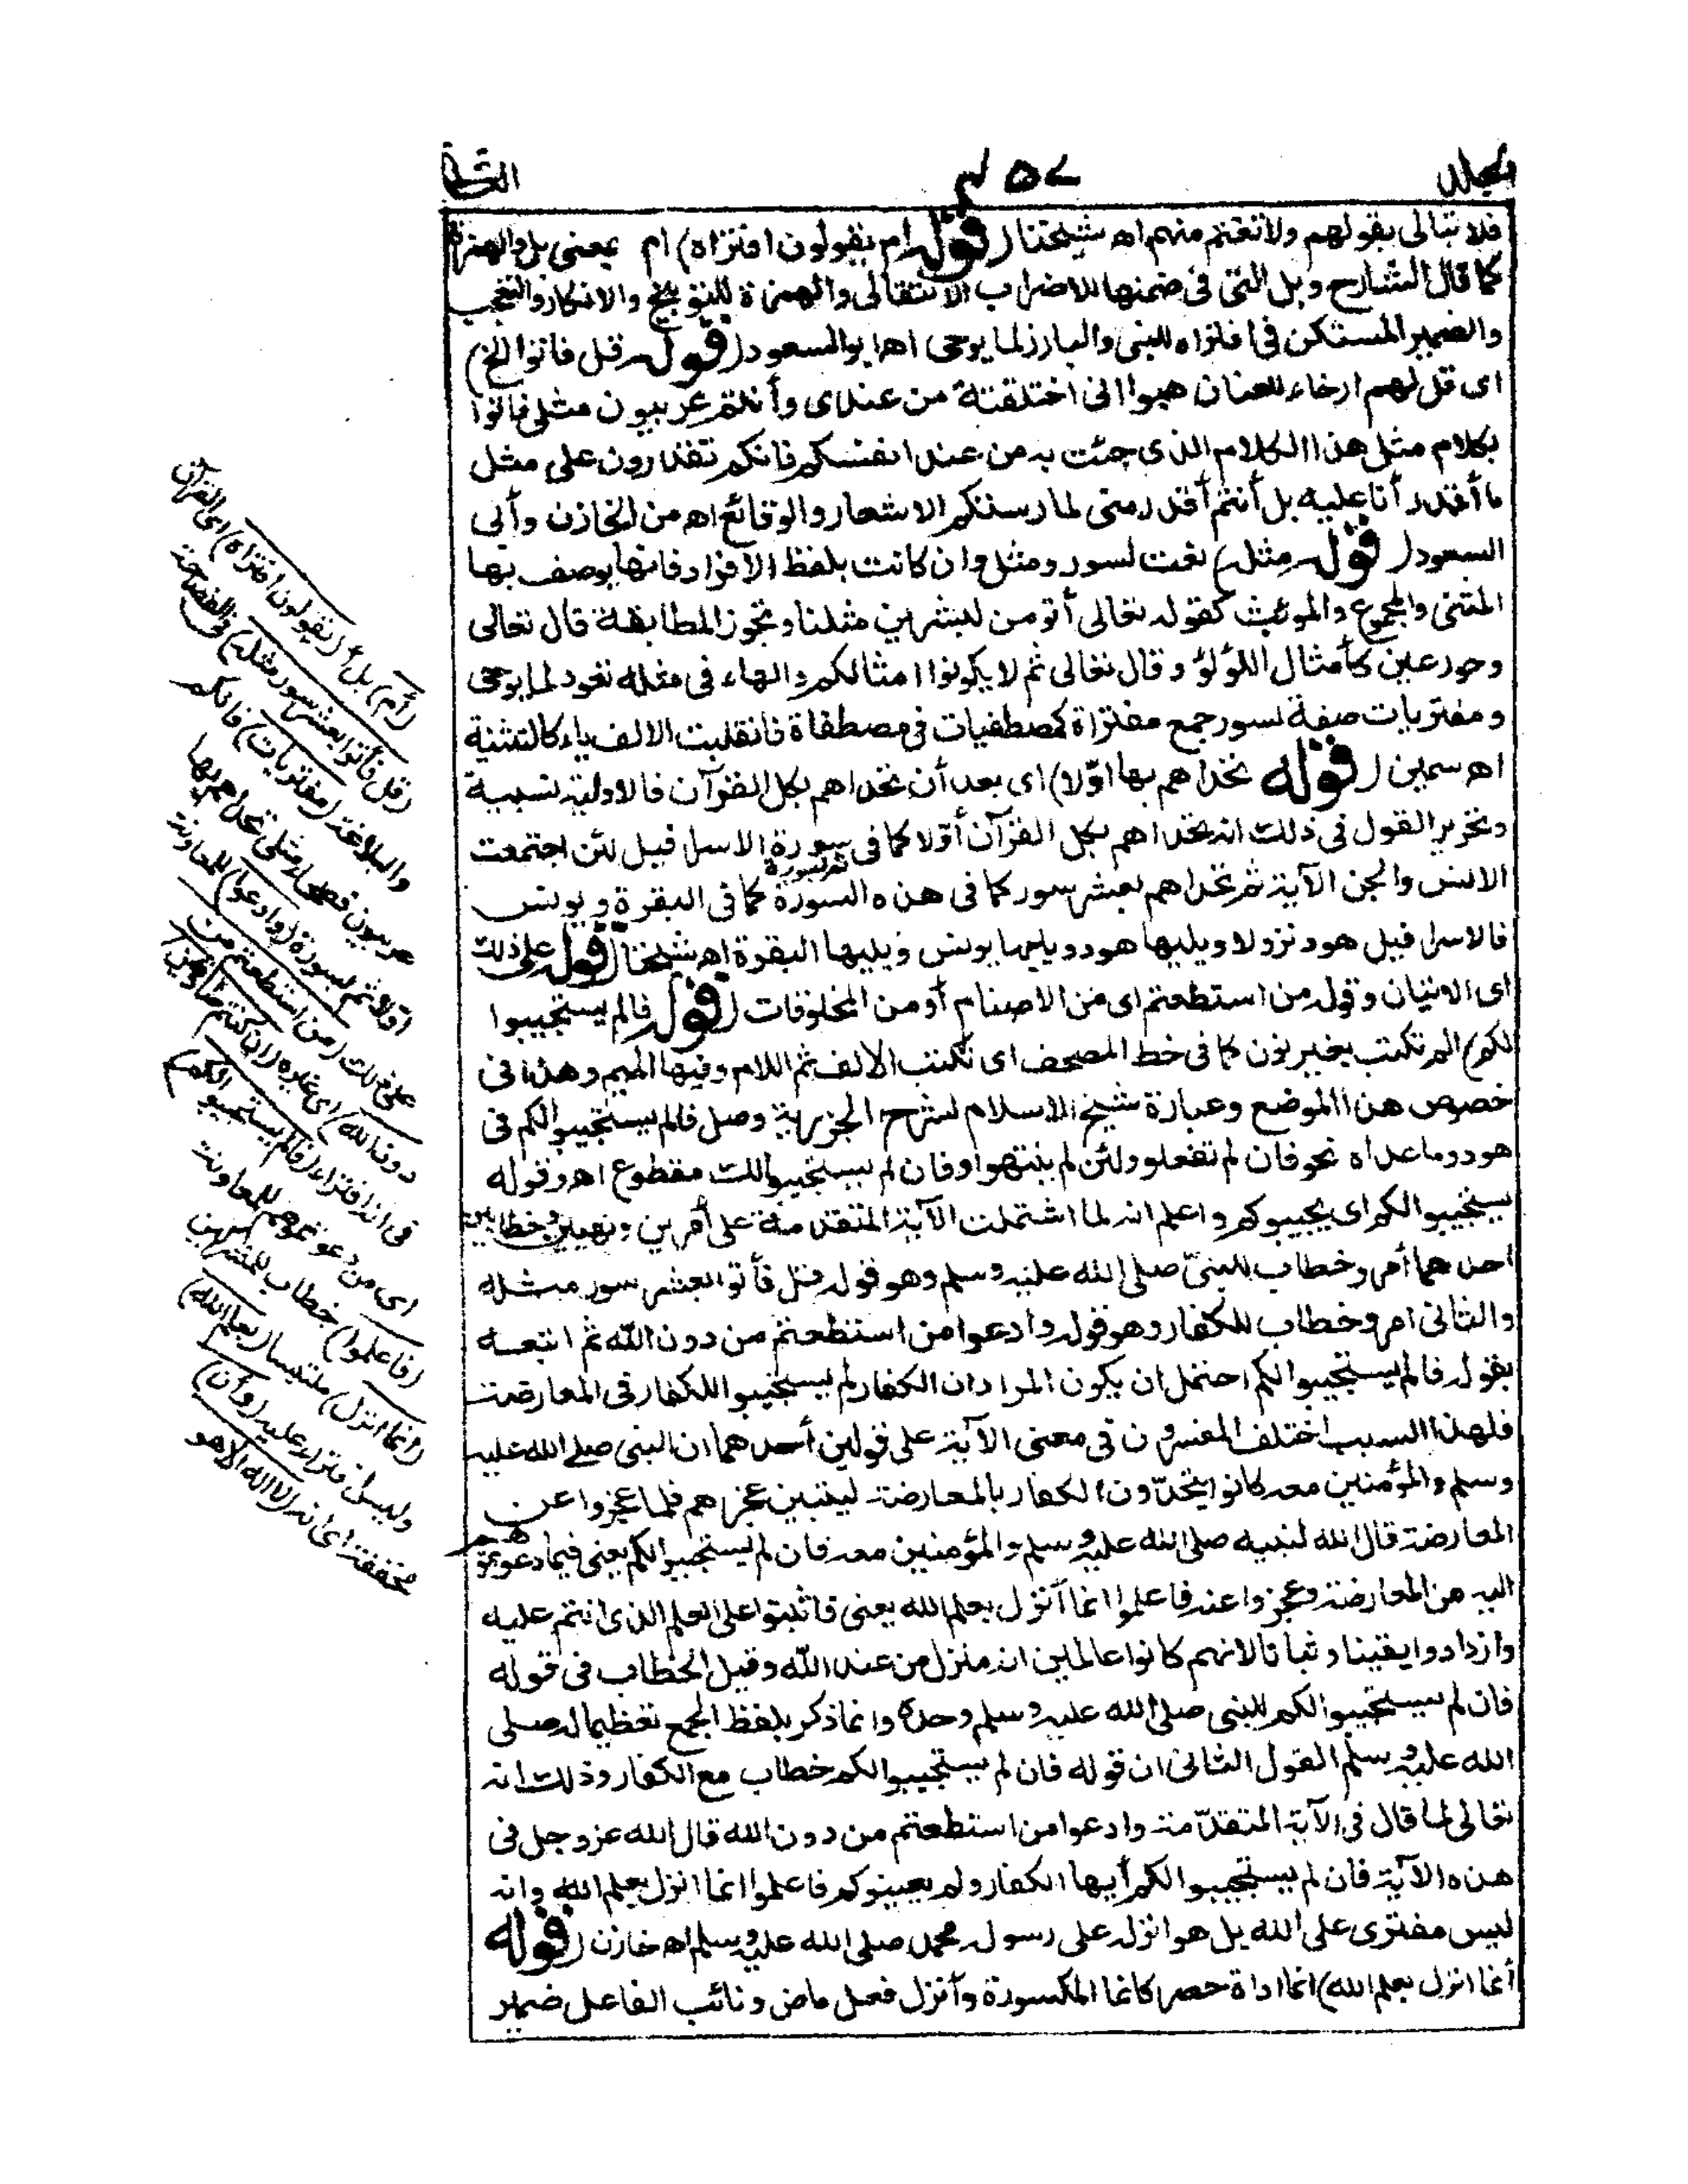 المجلد
٤٥٧
الثانى
فلا تبالى بقولهم ولا تغتم منهم اه شيخنا (قوله ام يقولون افتراه) ام بمعنى بل والهمزة
كما قال الشارح وبل التى فى ضمنها للاضراب الانتقالى والهمزة للتوبيخ والانكار والتعجب
والضمير المستكن فى افتراه للنبى والبارز لما يوحى اه ابو السعود (قوله قل فاتوا الخ)
اى قل لهم ارخاء للعنان هبوا انى اختلقته من عندى وأنتم عربيون مثلى فاتوا
بكلام مثل هذا الكلام الذى جئت به من عند انفسكم فانكم تقدرون على مثل
ما أقدر أنا عليه بل أنتم أقدر منى لممارستكم الاشعار والوقائع اه من الخازن وأبى
السعود (قوله مثله) نعت لسور ومثل وان كانت بلفظ الافراد فانها يوصف بها
المثنى والمجموع والمؤنث كقوله تعالى أنؤمن لبشرين مثلنا وتجوز المطابقة قال تعالى
وحور عين كأمثال اللؤلؤ وقال تعالى ثم لا يكونوا امثالكم والهاء فى مثله تعود لما يوحى
ومفتريات صفة لسور جمع مفتراة كمصطفيات فى مصطفاة فانقلبت الالف ياء كالتثنية
اه سمين (قوله تحداهم بها اوّلا) اى بعد أن تحداهم بكل القرآن فالاولية نسبية
وتحرير القول فى ذلك انه تحداهم بكل القرآن أوّلا كما فى سورة الاسرا قبل لئن اجتمعت
الانس والجن الآية ثم تحداهم بعشر سور كما فى هذه السورة ثم بسورة كما فى البقرة ويونس
فالاسرا قبل هود نزولا ويليها هود ويليها يونس ويليها البقرة اه شيخنا (قوله على ذلك
اى الاتيان وقوله من استطعتم اى من الاصنام أو من المخلوقات (قوله فالم يستجيبوا
لكم) الم تكتب بغير نون كما فى خط المصحف اى تكتب الالف ثم اللام وفيها الميم وهذا فى
خصوص هذا الموضع وعبارة شيخ الاسلام لشرح الجزرية وصل فالم يستجيبوا لكم فى
هود وما عداه نحو فان لم تفعلوا ولئن لم ينتهوا وفان لم يستجيبوا لك مقطوع اه وقوله
يستجيبوا لكم اى يجيبوكم واعلم انه لما اشتملت الآية المتقدمة على أمرين وخطابين
احدهما أمر وخطاب للنبىّ صلى الله عليه وسلم وهو قوله قل فأتوا بعشر سور مثله
والثانى امر وخطاب للكفار وهو قوله وادعوا من استطعتم من دون الله ثم اتبعه
بقوله فالم يستجيبوا لكم احتمل ان يكون المراد ان الكفار لم يستجيبوا للكفار فى المعارضة
فلهذا السبب اختلف المفسرون فى معنى الآية على قولين أحدهما ان النبى صلى الله عليه
وسلم والمؤمنين معه كانوا يتحدّون الكفار بالمعارضة ليتبين عجزهم فلما عجزوا عن
المعارضة قال الله لنبيه صلى الله عليه وسلم والمؤمنين معه فان لم يستجيبوا لكم يعنى فيما دعوتموهم
اليه من المعارضة وعجزوا عنه فاعلموا انما أنزل بعلم الله يعنى فاثبتوا على العلم الذى انتم عليه
وازدادوا يقينا وثباتا لانهم كانوا عالمين انه منزل من عند الله وقيل الخطاب فى قوله
فان لم يستجيبوا لكم للنبى صلى الله عليه وسلم وحده وانما ذكر بلفظ الجمع تعظيما له صلى
الله عليه وسلم القول الثانى ان قوله فان لم يستجيبوا لكم خطاب مع الكفار وذلك انه
تعالى لما قال فى الآية المتقدّمة وادعوا من استطعتم من دون الله قال الله عز وجل فى
هذه الآية فان لم يستجيبوا لكم أيها الكفار ولم يعينوكم فاعلموا انما انزل بعلم الله وانه
ليس مفترى على الله بل هو انزله على رسوله محمد صلى الله عليه وسلم اه خازن (قوله
أنما انزل بعلم الله) انما اداة حصر كانما المكسورة وأنزل فعل ماض ونائب الفاعل ضمير
(أم) بل أ (يقولون افتراه) اى القرآن
(قل فأتوا بعشر سور مثله) فى الفصاحة
والبلاغة (مفتريات) فانكم
عربيون فصحاء مثلى تحداهم بها
اولا ثم بسورة (وادعوا) للمعاونة
على ذلك (من استطعتم من
دون الله) اى غيره (ان كنتم صادقين)
فى انه افتراء (فالم يستجيبوا لكم)
اى من دعوتموهم للمعاونة
(فاعلموا) خطاب للمشركين
(انما انزل) ملتبسا (بعلم الله)
وليس افتراء عليه (وأن)
مخففة اى انه (لا اله الا هو